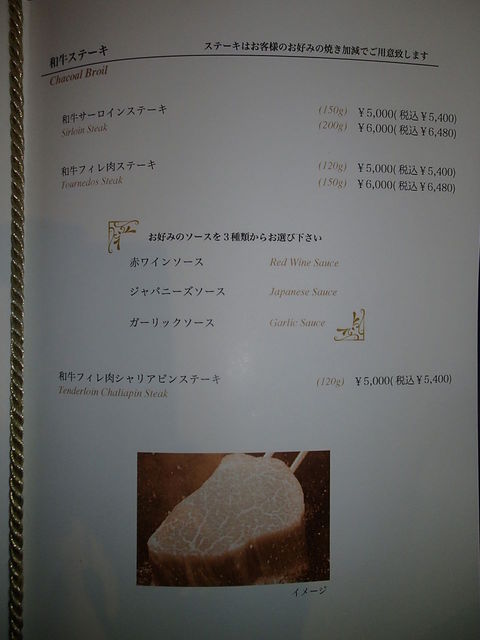 和牛ステーキ ステーキはお客様のお好みの焼き加減でご用意致します
Chacoal Broil
和牛サーロインステーキ (150g) ￥5,000(税込￥5,400)
Sirloin Steak (200g) ￥6,000(税込￥6,480)
和牛フィレ肉ステーキ (120g) ￥5,000(税込￥5,400)
Tournedos Steak (150g) ￥6,000(税込￥6,480)
お好みのソースを３種類からお選び下さい
赤ワインソース Red Wine Sauce
ジャパニーズソース Japanese Sauce
ガーリックソース Garlic Sauce
和牛フィレ肉シャリアピンステーキ (120g) ￥5,000(税込￥5,400)
Tenderloin Chaliapin Steak
イメージ